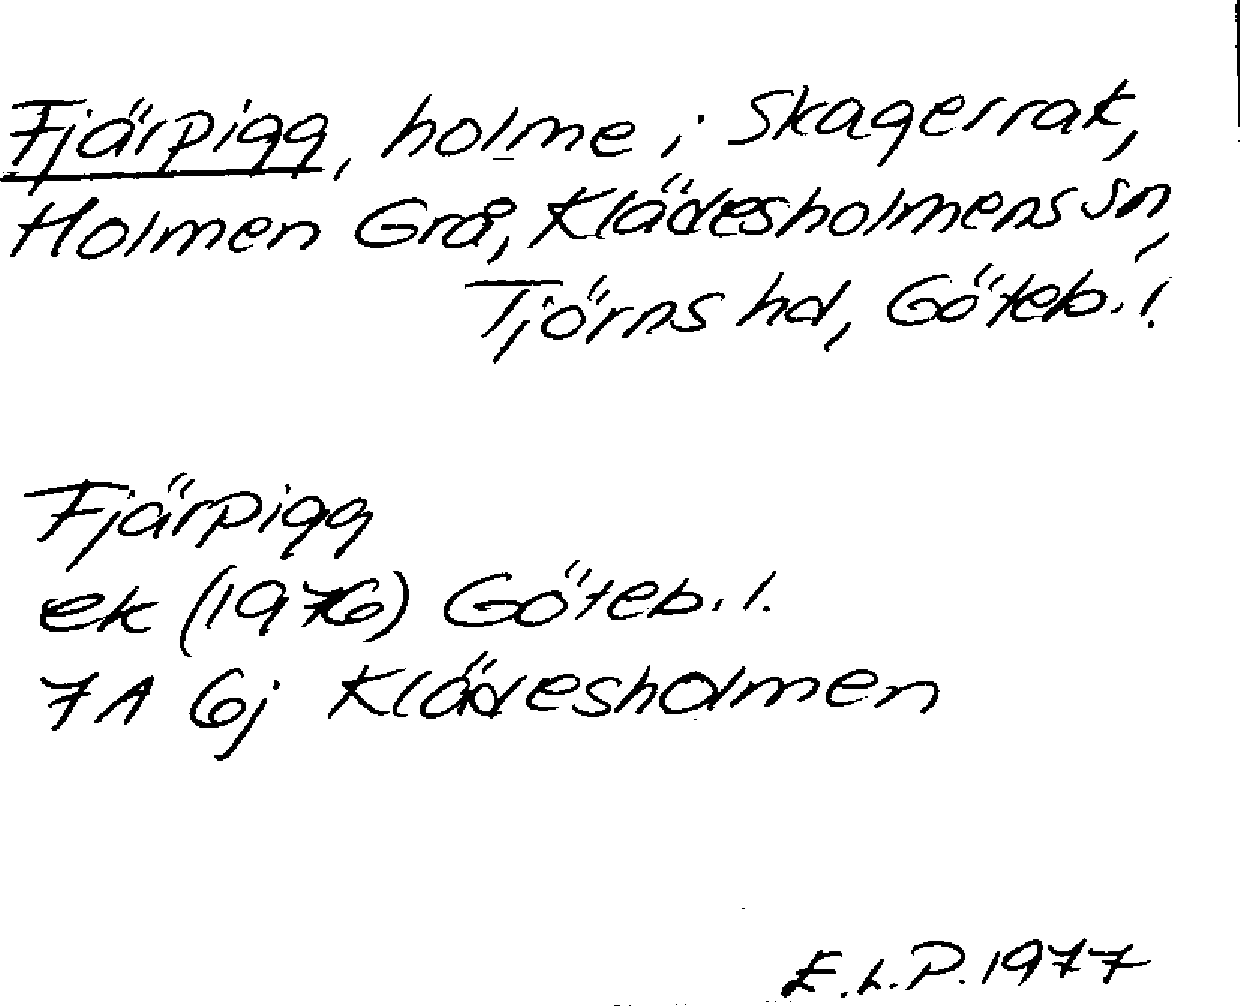 Fjärpigg, holme i Skagerrak,
Holmen Grå, Klädesholmens sn,
Tjörns hd, Göteb. l.
Fjärpigg
ek (1976) Göteb. l.
7A 6j Klädesholmen
E.L.P. 1977